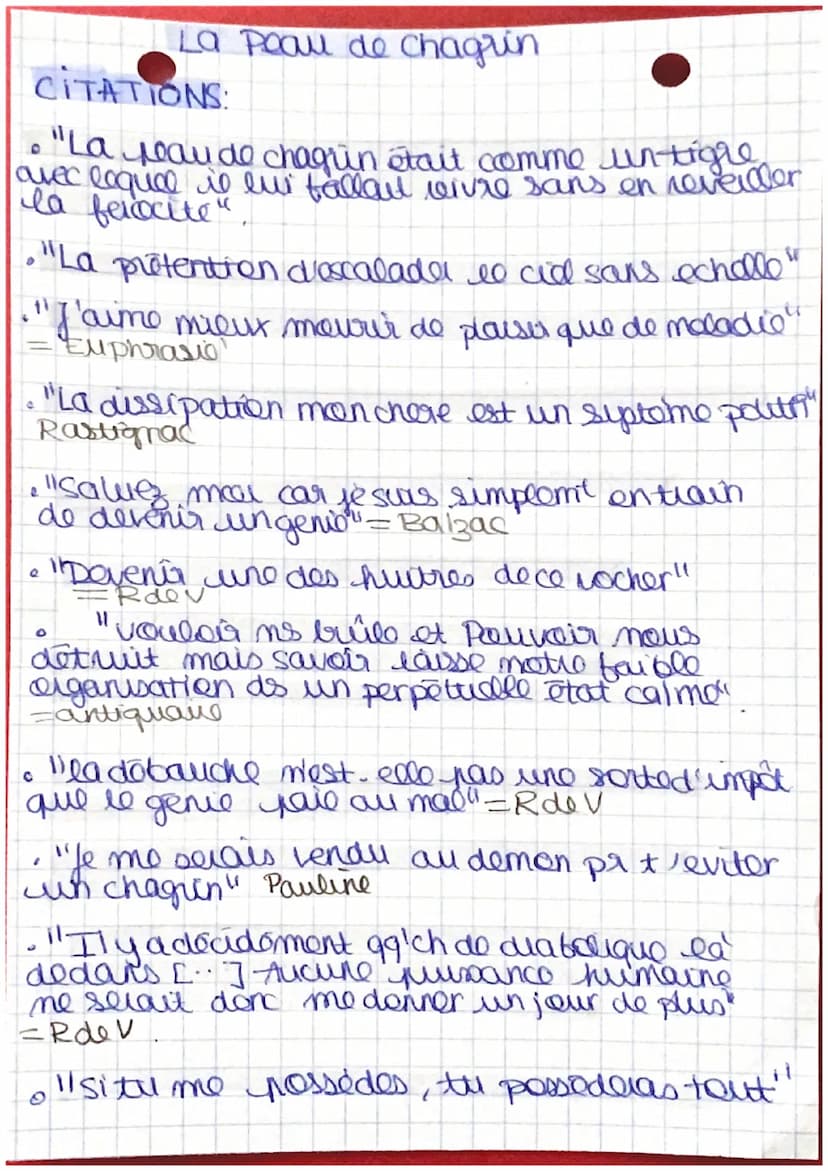 La Peau de Chagrin
CITATIONS:
• "La peau de chagrin était comme un tigre
avec lequel il lui fallait vivre sans en reveiller
la ferocité".
• "La prétention d'escalader le ciel sans echelle"
• "J'aime mieux mourir de plaisir que de maladie"
= Euphrasie
• "La dissipation mon chere est un système politq"
Rastignac
• "Saluez moi car je suis simplemt entrain
de devenir un genie" = Balzac
• "Devenir une des huitres de ce rocher"
= R de V
• "vouloir ns brûle et Pouvoir nous
détruit mais savoir laisse notre faible
organisation ds un perpétuelle état calme".
= antiquaire
• "la débauche n'est-elle pas une sorte d'impôt
que le genie paie au mal" = R de V
• "Je me serais vendu au demon pr t'eviter
un chagrin" Pauline
• "Il y a décidément qq'ch de diabolique là
dedans [...] Aucune puissance humaine
ne serait donc me donner un jour de plus"
= R de V.
• "si tu me possèdes, tu possederas tout"